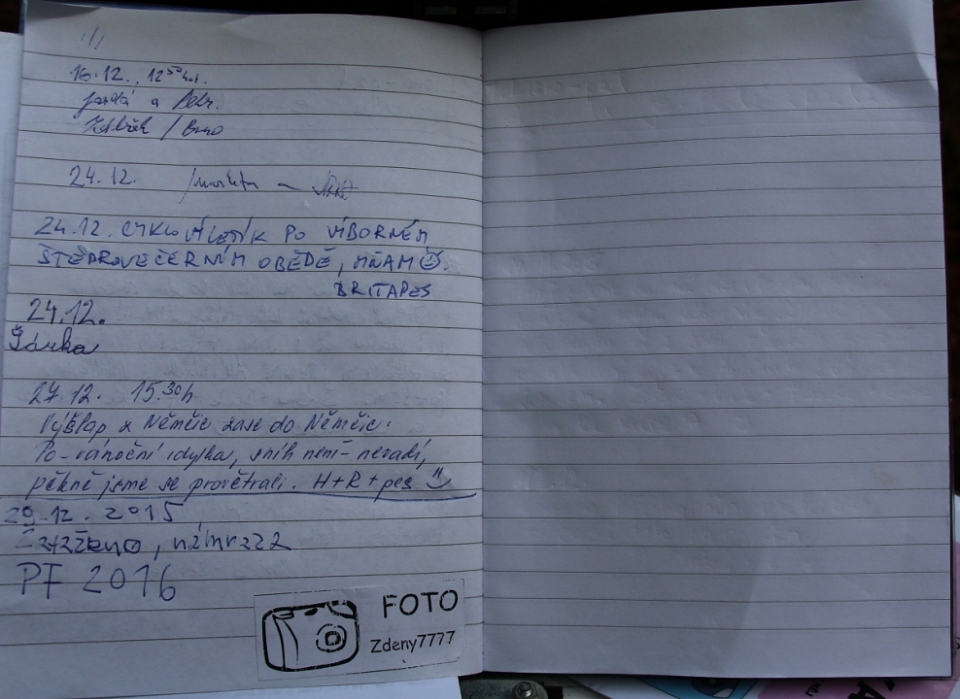 16.12., 12⁵⁰ hod.
Jarda a Petr.
/ Brno
24.12. Markéta
24.12. CYKLOVÍLETÍK PO VÍBORNÉM
ŠTĚDROVEČERNÍM OBĚDĚ, MŇAM☺.
BRITAPES
24.12.
Šárka
27.12. 15.30h
Výšlap z Němčic zase do Němčic.
Po-vánoční idylka, sníh není - nevadí,
pěkně jsme se provětrali. H+R+pes ☺
29.12. 2015
Zataženo, námraza
PF 2016
FOTO
Zdeny7777